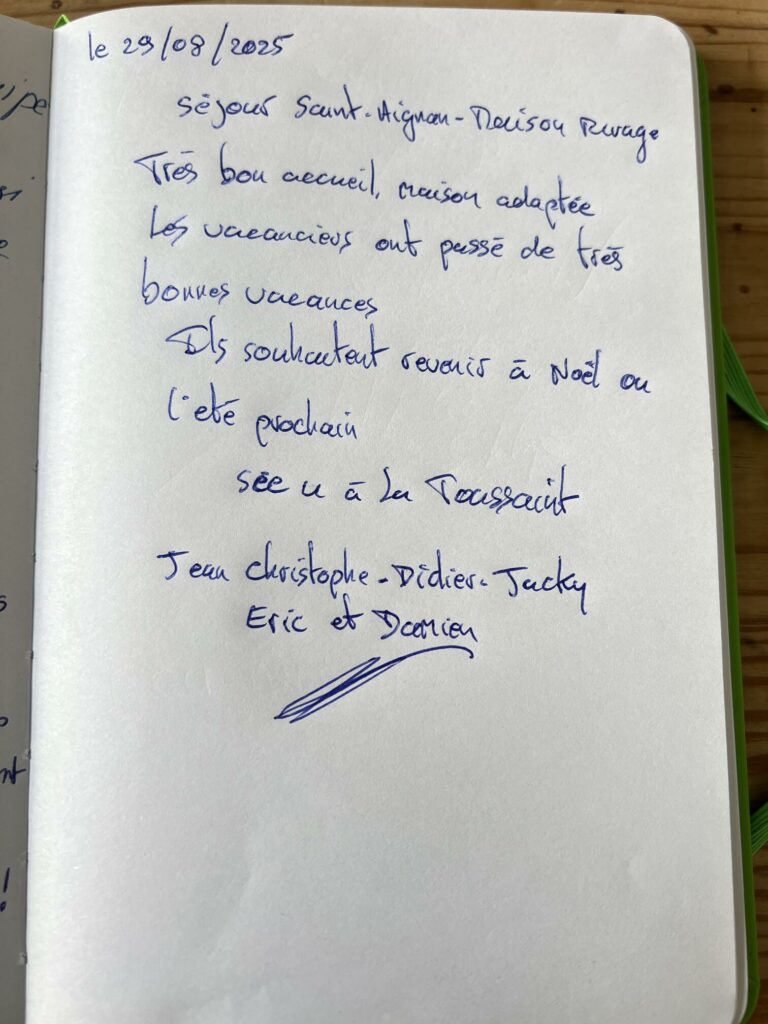 le 29/08/2025
Séjour Saint-Aignan-Maison Rivage
Très bon accueil, maison adaptée
Les vacanciers ont passé de très
bonnes vacances
Ils souhaitent revenir à Noël ou
l'eté prochain
Sée u à la Toussaint
Jean Christophe-Didier-Jacky
Eric et Damien